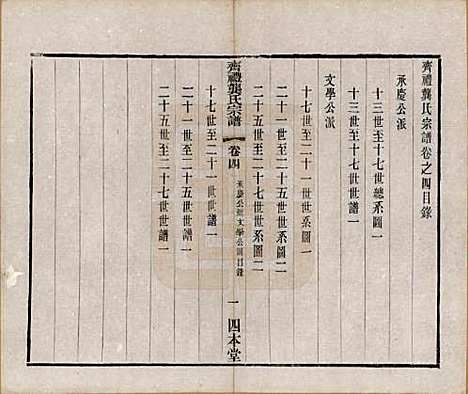 齊禮龔氏宗譜卷之四目錄
承慶公派
十三世至十七世總系圖一
十三世至十七世世譜一
文學公派
十七世至二十一世世系圖一
二十一世至二十五世世系圖二
二十五世至二十七世世系圖二
齊禮龔氏宗譜
卷四
承慶公派文學公派目錄
一
四本堂
十七世至二十一世世譜一
二十一世至二十五世世譜一
二十五世至二十七世世譜一